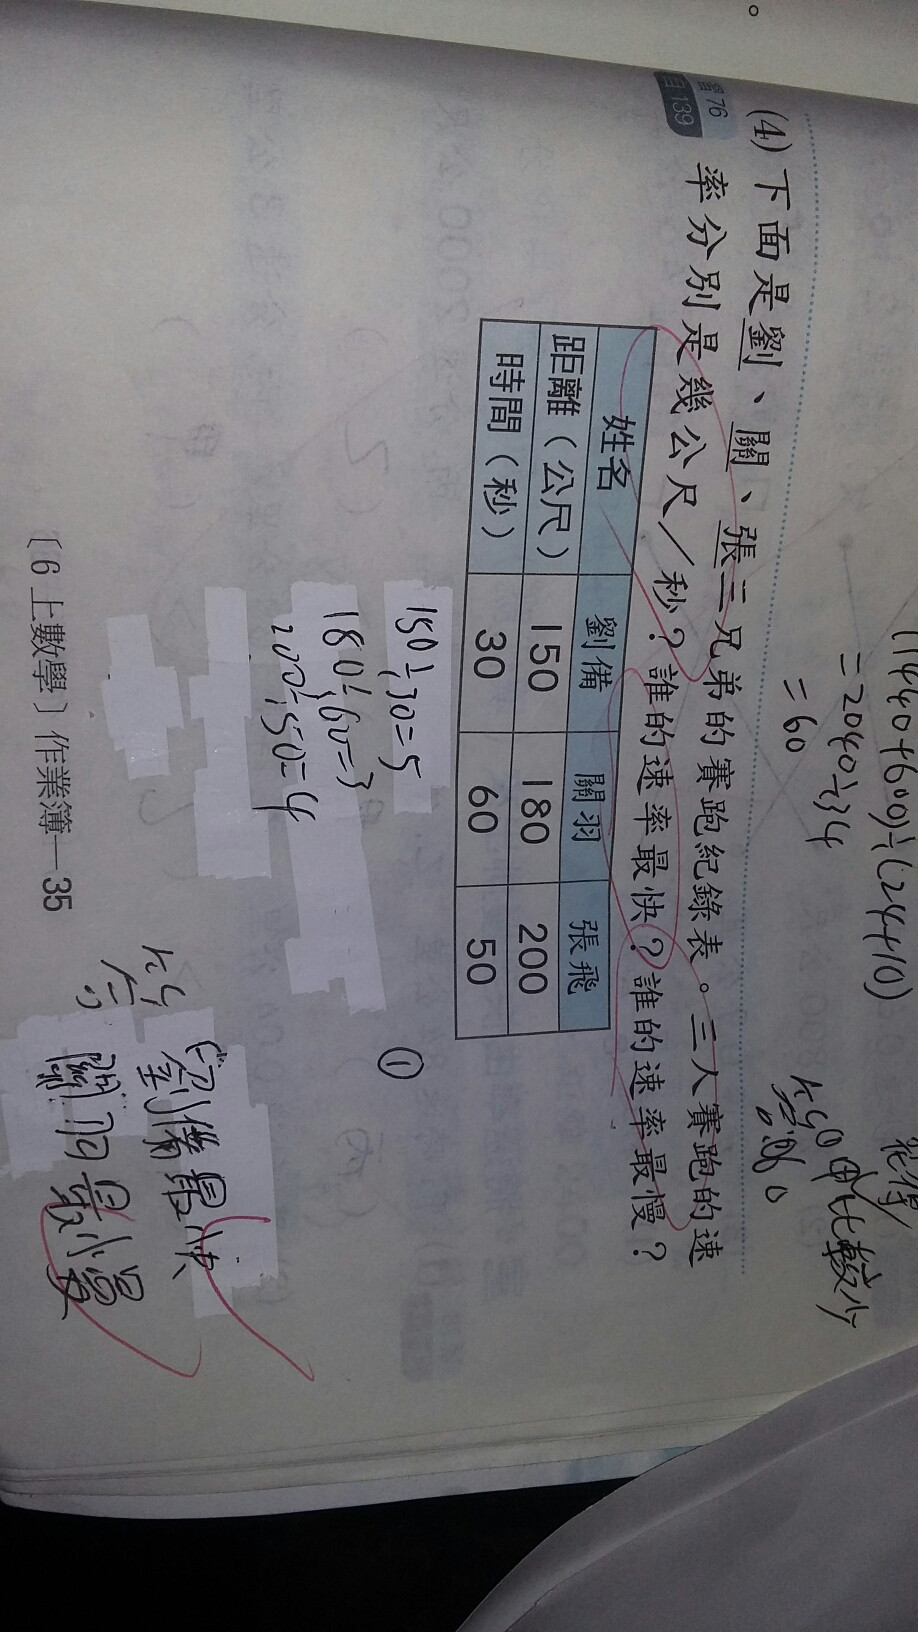 (1440+600)÷(24+10)
=2040÷34
=60
答:60
(4)下面是劉、關、張三兄弟的賽跑紀錄表。三人賽跑的速
習76
自139
率分別是幾公尺／秒？誰的速率最快？誰的速率最慢？
姓名 劉備 關羽 張飛
距離(公尺) 150 180 200
時間(秒) 30 60 50
150÷30=5
180÷60=3
200÷50=4
①
答 劉備最快
關羽最慢
〔6上數學〕作業簿—35